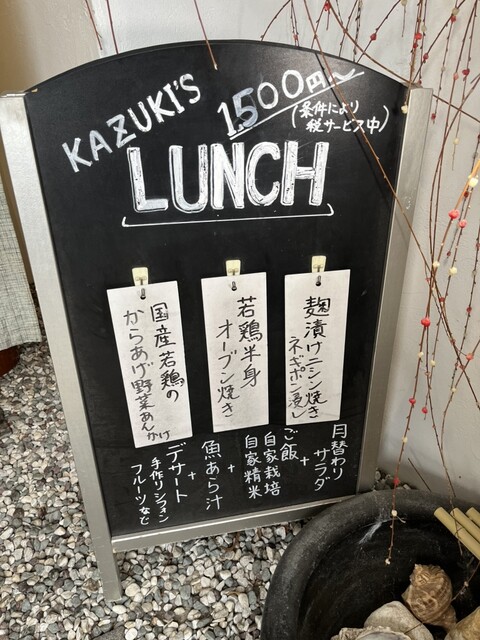 KAZUKI'S
1,500円〜
(条件により
税サービス中)
LUNCH
麹漬けニシン焼き
ネギポン浸し
若鶏半身
オーブン焼き
国産若鶏の
からあげ野菜あんかけ
月替わり
サラダ
+
ご飯
自家栽培
自家精米
+
魚あら汁
+
デザート
手作りシフォン
フルーツなど